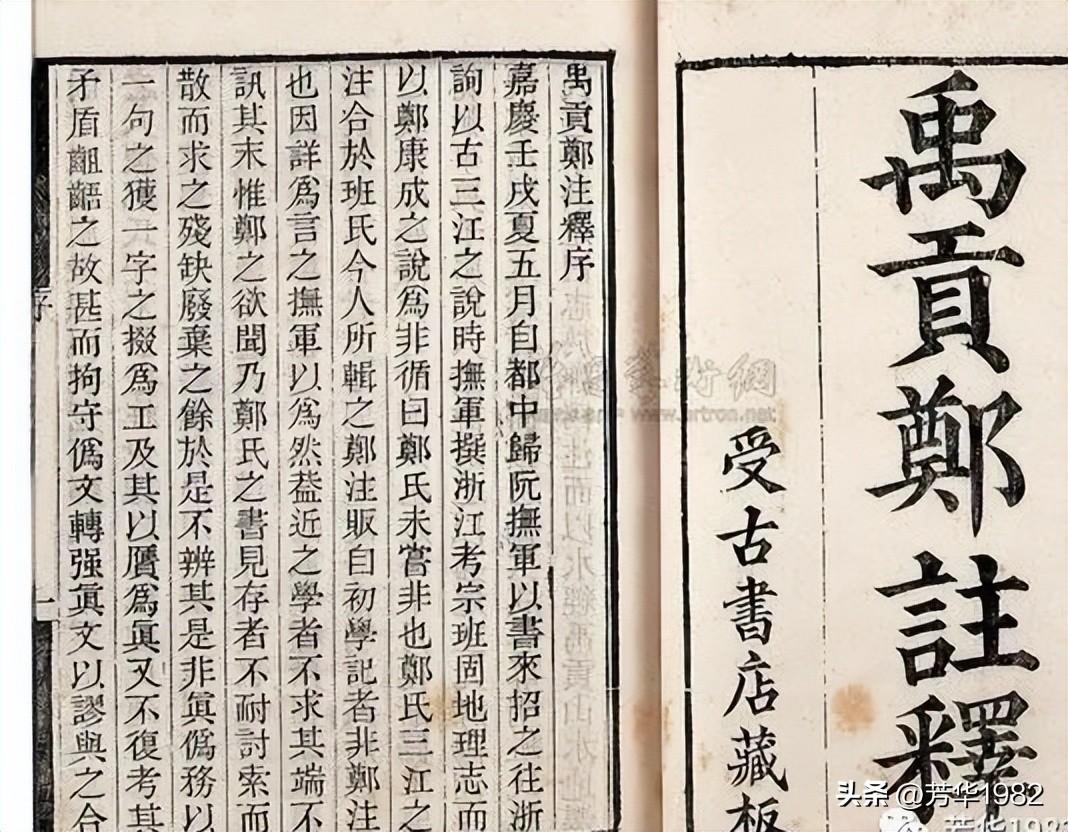 禹貢鄭註釋
受古書店藏板
禹貢鄭注釋序
嘉慶壬戌夏五月自都中歸阮撫軍以書來招之往浙
詢以古三江之說時撫軍撰浙江考宗班固地理志而
以鄭康成之說為非循曰鄭氏未嘗非也鄭氏三江之
注合於班氏今人所輯之鄭注販自初學記者非鄭注
也因詳為言之撫軍以為然葢近之學者不求其端不
訊其末惟鄭之欲聞乃鄭氏之書見存者不耐討索而
散而求之殘缺廢棄之餘於是不辨其是非眞偽務以
一句之獲一字之掇為工及其以贋為眞又不復考其
矛盾齟齬之故甚而拘守偽文轉强眞文以謬與之合
序
一
www.artron.net
头条 @芳华1982
芳华1982